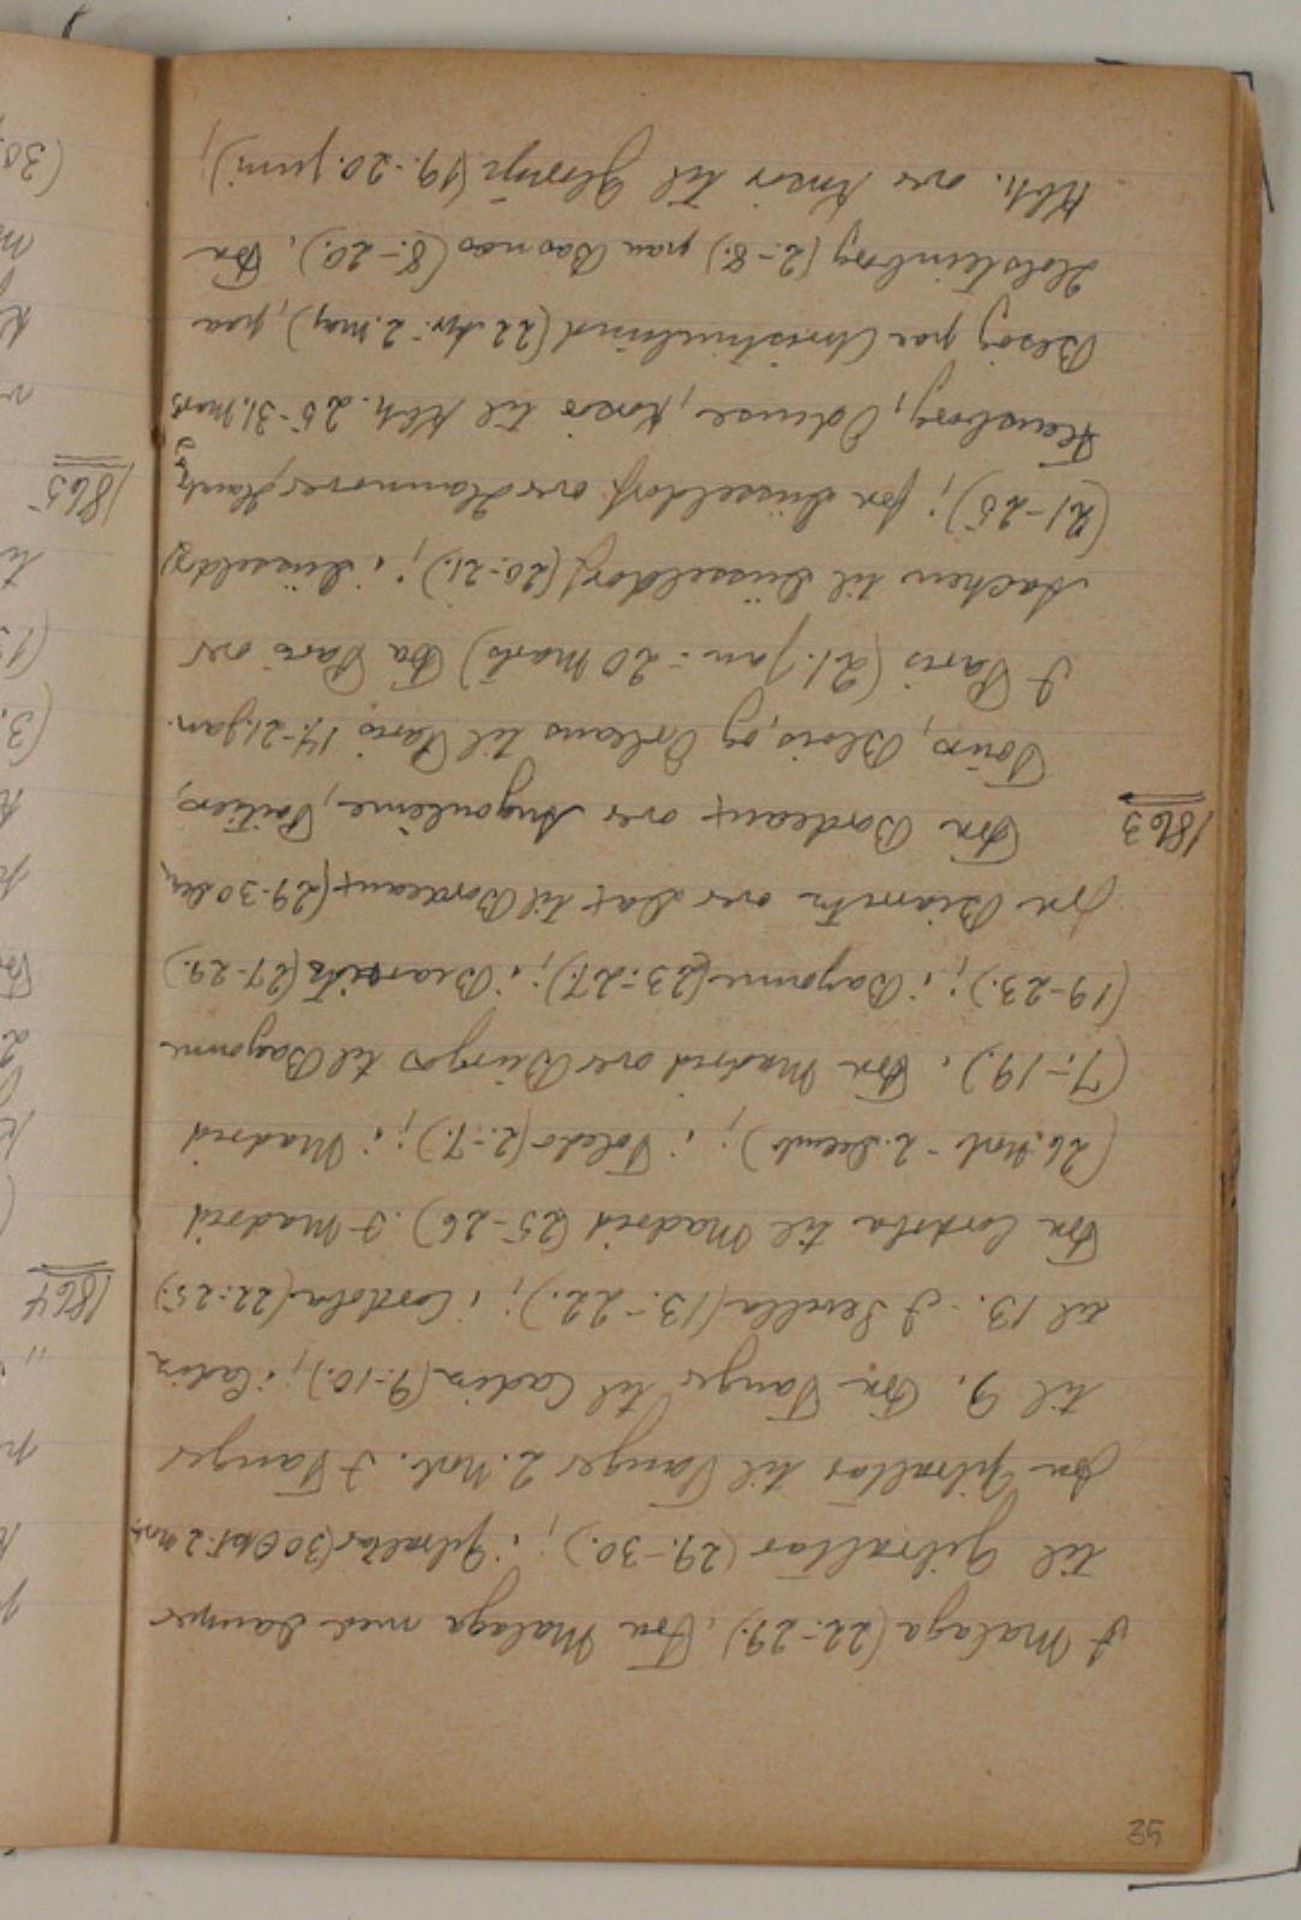 35
I Malaga (22.-29.). Fra Malaga med Damper
til Gibraltar (29.-30.); i Gibraltar (30 Okt.-2 Nov.
fra Gibraltar til Tanger 2. Nov. I Tanger
til 9. Fra Tanger til Cadix (9.-10.); i Cadix
til 13. I Sevilla (13.-22.); i Cordoba (22.-25.)
Fra Cordoba til Madrid (25-26). I Madrid
(26. Nov.-2. Decemb); i Toledo (2.-7.); i Madrid
(7.-19.). Fra Madrid over Burgos til Bayonne
(19-23.); i Bayonne (23.-27.); i Biarritz (27-29.)
fra Biarritz over Dax til Bordeaux (29-30 Dec
1863 Fra Bordeaux over Angoulême, Poitiers,
Tours, Blois, og Orleans til Paris 14.-21. jan.
I Paris (21. jan.-20 Marts) Fra Paris over
Aachen til Düsseldorf (20.-21.); i Düsseldorf
(21-25); fra Düsseldorf over Hannover, Hamburg
Flensborg, Odense, Korsør til Kbh. 25-31. Marts
Besøg paa Christinelund (22 Apr.-2. Maj), paa
Holsteinborg (2.-8.) paa Basnæs (8.-20.). Fra
Kbh. over Korsør til Glorup (19.-20. juni),
1864
1865